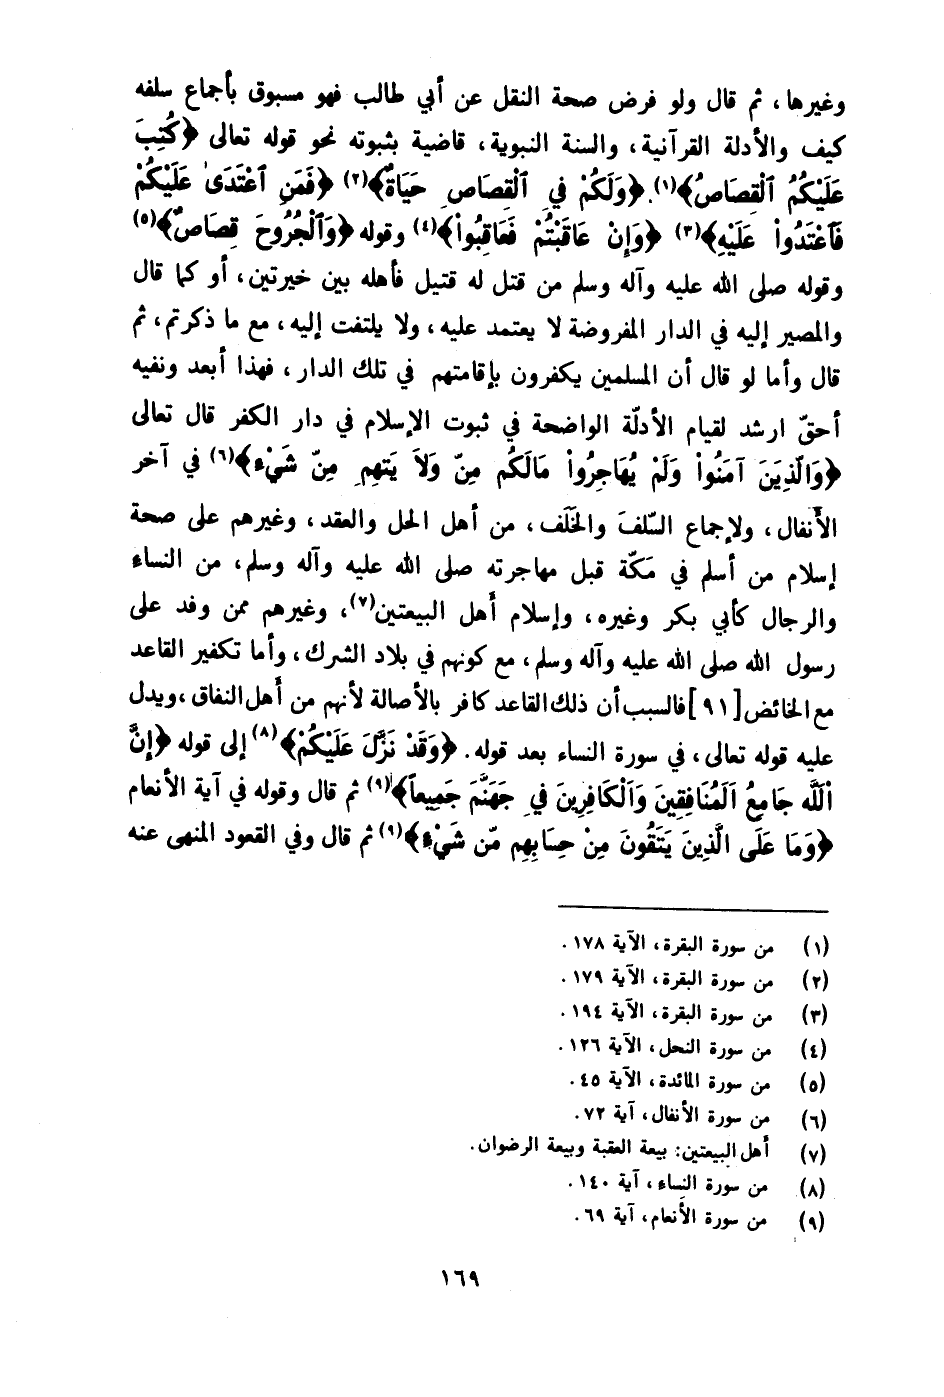 وغيرها، ثم قال ولو فرض صحة النقل عن أبي طالب فهو مسبوق بأجماع سلفه
كيف والأدلة القرآنية، والسنة النبوية، قاضية بثبوته نحو قوله تعالى ﴿كُتِبَ
عَلَيْكُمُ ٱلْقِصَاصُ﴾(١). ﴿وَلَكُمْ فِي ٱلْقِصَاصِ حَيَاةٌ﴾(٢) ﴿فَمَنِ ٱعْتَدَىٰ عَلَيْكُمْ
فَٱعْتَدُواْ عَلَيْهِ﴾(٣) ﴿وَإِنْ عَاقَبْتُمْ فَعَاقِبُواْ﴾(٤) وقوله ﴿وَٱلْجُرُوحَ قِصَاصٌ﴾(٥)
وقوله صلى الله عليه وآله وسلم من قتل له قتيل فأهله بين خيرتين، أو كما قال
والمصير إليه في الدار المفروضة لا يعتمد عليه، ولا يلتفت إليه، مع ما ذكرتم، ثم
قال وأما لو قال أن المسلمين يكفرون بإقامتهم في تلك الدار، فهذا أبعد ونفيه
أحقّ ارشد لقيام الأدلّة الواضحة في ثبوت الإسلام في دار الكفر قال تعالى
﴿وَالَّذِينَ آمَنُواْ وَلَمْ يُهَاجِرُواْ مَالَكُم مِنّ وَلاَ يَتهِم مِنّ شَيْءٍ﴾(٦) في آخر
الأنفال، ولإجماع السّلفَ والخَلَف، من أهل الحل والعقد، وغيرهم على صحة
إسلام من أسلم في مَكّة قبل مهاجرته صلى الله عليه وآله وسلم، من النساء
والرجال كأبي بكر وغيره، وإسلام أهل البيعتين(٧)، وغيرهم ممن وفد على
رسول الله صلى الله عليه وآله وسلم، مع كونهم في بلاد الشرك، وأما تكفير القاعد
مع الخائض [٩١] فالسبب أن ذلك القاعد كافر بالأصالة لأنهم من أهل النفاق، ويدل
عليه قوله تعالى، في سورة النساء بعد قوله. ﴿وَقَدْ نَزَّلَ عَلَيْكُمْ﴾(٨) إلى قوله ﴿إِنَّ
اْللَّه جَامِعُ اَلْمُنَافِقِينَ وَاَلْكَافِرِينَ فِي جَهَنَّمَ جَمِيعاً﴾(٩) ثم قال وقوله في آية الأنعام
﴿وَمَا عَلَى الَّذِينَ يَتَقُونَ مِنْ حِسَابِهِم مّن شَيْءٍ﴾(٩) ثم قال وفي القعود المنهى عنه
(١) من سورة البقرة، الآية ١٧٨.
(٢) من سورة البقرة، الآية ١٧٩.
(٣) من سورة البقرة، الآية ١٩٤.
(٤) من سورة النحل، الآية ١٢٦.
(٥) من سورة المائدة، الآية ٤٥.
(٦) من سورة الأنفال، آية ٧٢.
(٧) أهل البيعتين: بيعة العقبة وبيعة الرضوان.
(٨) من سورة النساء، آية ١٤٠.
(٩) من سورة الأنعام، آية ٦٩.
١٦٩